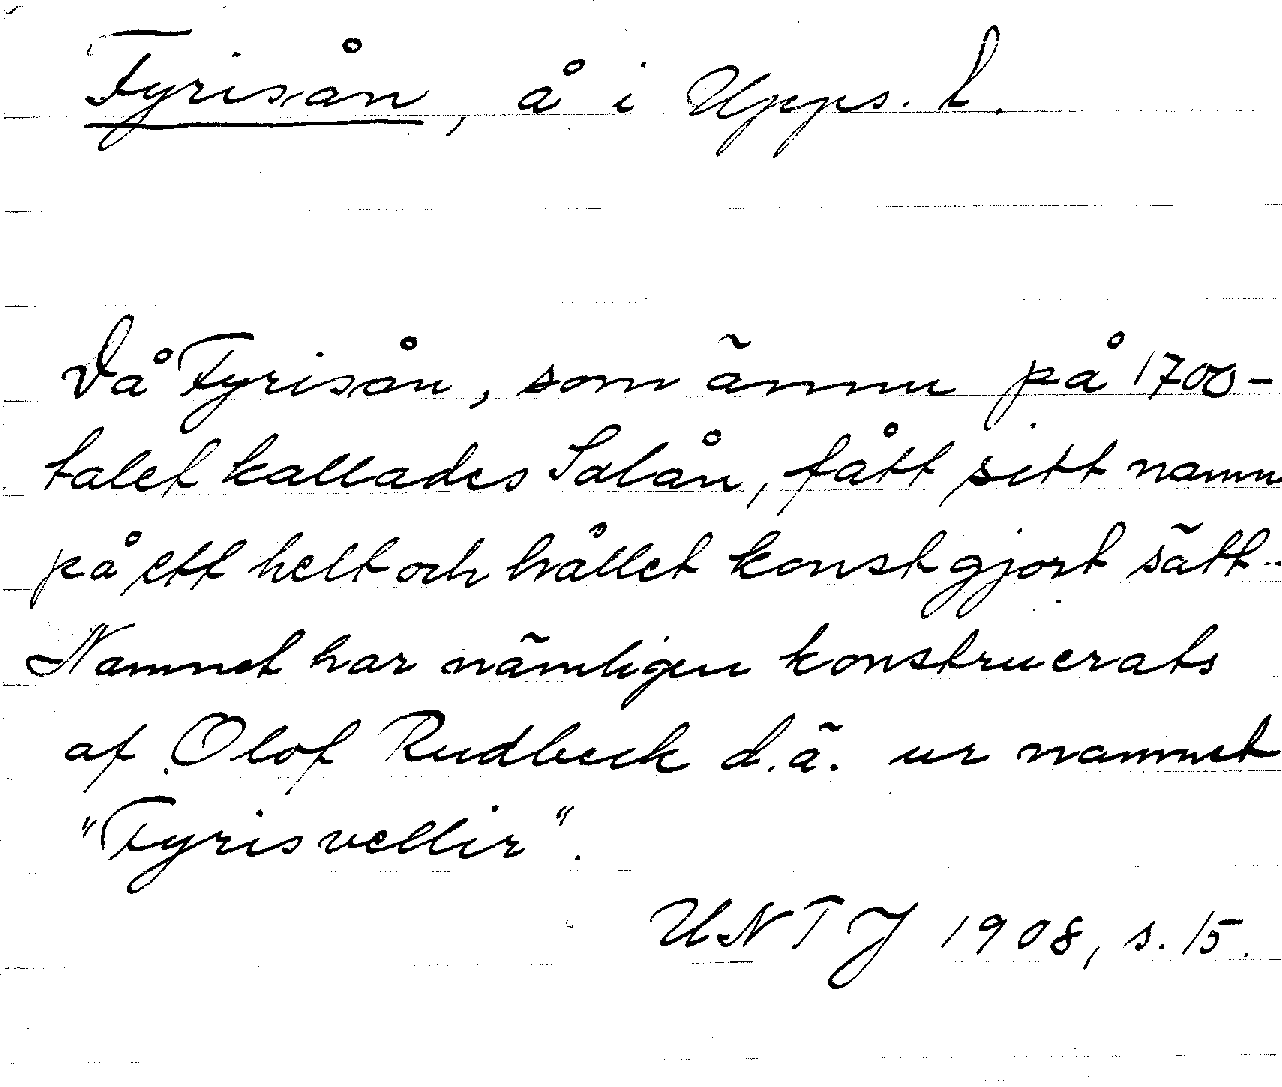 Fyrisån, å i Upps. l.
Då Fyrisån, som ännu på 1700-
talet kallades Salån, fått sitt namn
på ett helt och hållet konstgjort sätt.
Namnet har nämligen konstruerats
af Olof Rudbeck d.ä. ur namnet
"Fyrisvellir".
UNTJ 1908, s. 15.